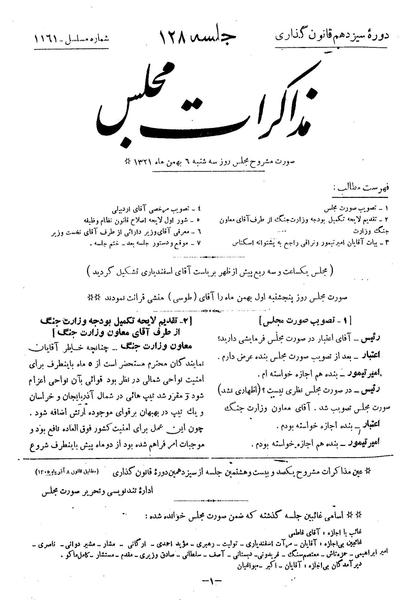 دورهٔ سیزدهم قانون گذاری
جلسه ۱۲۸
شماره مسلسل - ۱۱۶۱
مذاکرات مجلس
صورت مشروح مجلس روز سه شنبه ۶ بهمن ماه ۱۳۲۱ *
فهرست مطالب:
۱ - تصویب صورت مجلس
۲ - تقدیم لایحه تکمیل بودجه وزارت جنگ از طرف آقای معاون
وزارت جنگ
۳ - بیانات آقایان امیرتیمور و نراقی راجع به پشتوانه اسکناس
۴ - تصویب مرخصی آقای اردبیلی
۵ - شور اول لایحه اصلاح قانون نظام وظیفه
۶ - معرفی آقای وزیر دارائی از طرف آقای نخست وزیر
۷ - موقع و دستور جلسه بعد - ختم جلسه .
( مجلس یکساعت و سه ربع پیش از ظهر بریاست آقای اسفندیاری تشکیل گردید )
صورت مجلس روز پنجشنبه اول بهمن ماه را آقای (طوسی) منشی قرائت نمودند **
[ ۱ - تصویب صورت مجلس ]
رئیس - آقای اعتبار در صورت مجلس فرمایشی دارید؟
اعتبار - بعد از تصویب صورت مجلس بنده عرض دارم .
امیرتیمور - بنده هم اجازه خواسته ام.
رئیس - در صورت مجلس نظری نیست؟ (اظهاری نشد)
صورت مجلس تصویب شد . آقای معاون وزارت جنگ
امیرتیمور - بنده هم اجازه خواسته بودم .
[ ۲- تقدیم لایحه تکمیل بودجه وزارت جنگ
از طرف آقای معاون وزارت جنگ ]
معاون وزارت جنگ - چنانچه خاطر آقایان
نمایندگان محترم مستحضر است از ۵ ماه باینطرف برای
امنیت نواحی شمالی در نظر بود قوائی بآن نواحی اعزام
شود و مقرر شد تیپ هائی در شمال آذربایجان و خراسان
و یك تیپ در بهبهان برقوای موجوده ارتش اضافه شود .
چون این عمل برای امنیت کشور فوق العاده نافع بود و
موجبات امر فراهم شده بود از دو ماه پیش باینطرف شروع
* عین مذاکرات مشروح یکصد و بیست و هشتمین جلسه از سیزدهمین دورهٔ قانون گذاری
اداره تندنویسی و تحریر صورت مجلس
** اسامی غائبین جلسه گذشته که ضمن صورت مجلس خوانده شده :
غائب با اجازه : آقای فاطمی
غائبین بی‌اجازه : آقایان - مرآت اسفندیاری - تولیت - رهبری - مؤید احمدی - ارگانی - مشار - مشیر دوانی - ناصری -
امیر ابراهیمی - حمزه‌تاش - معتصم‌سنگ - فریدونی - دبستانی - آصف - سلطانی - صادق وزیری - مقدم - مستشار - کامل ماکو .
دیرآمدگان بی‌اجازه : آقایان - اکبر - موابدیان
-۱-